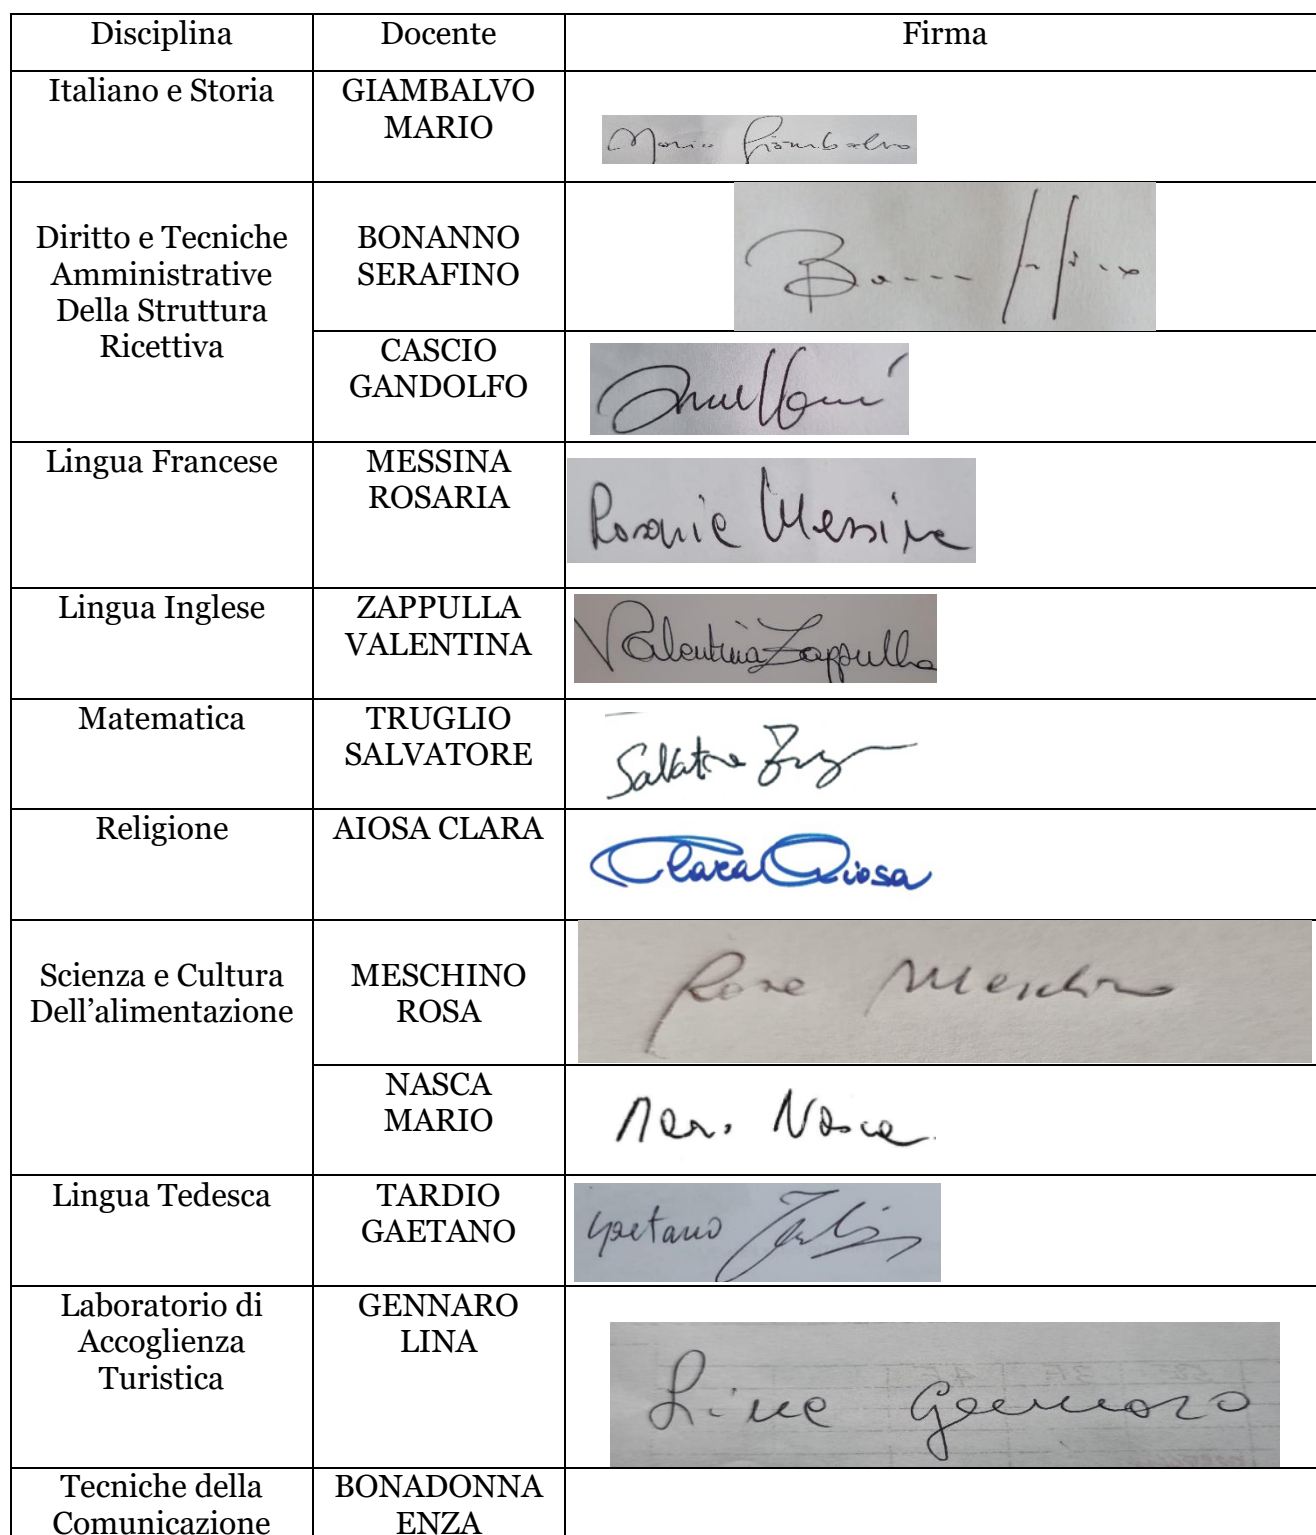 Disciplina Docente Firma
Italiano e Storia GIAMBALVO
MARIO
Mario Giambalvo
Diritto e Tecniche
Amministrative
Della Struttura
Ricettiva
BONANNO
SERAFINO
CASCIO
GANDOLFO
Lingua Francese MESSINA
ROSARIA
Rosaria Messina
Lingua Inglese ZAPPULLA
VALENTINA
Valentina Zappulla
Matematica TRUGLIO
SALVATORE
Salvatore
Religione AIOSA CLARA
Clara Aiosa
Scienza e Cultura
Dell’alimentazione
MESCHINO
ROSA
Rosa Meschino
NASCA
MARIO
Mario Nasca
Lingua Tedesca TARDIO
GAETANO
Gaetano
Laboratorio di
Accoglienza
Turistica
GENNARO
LINA
Lina Gennaro
Tecniche della
Comunicazione
BONADONNA
ENZA